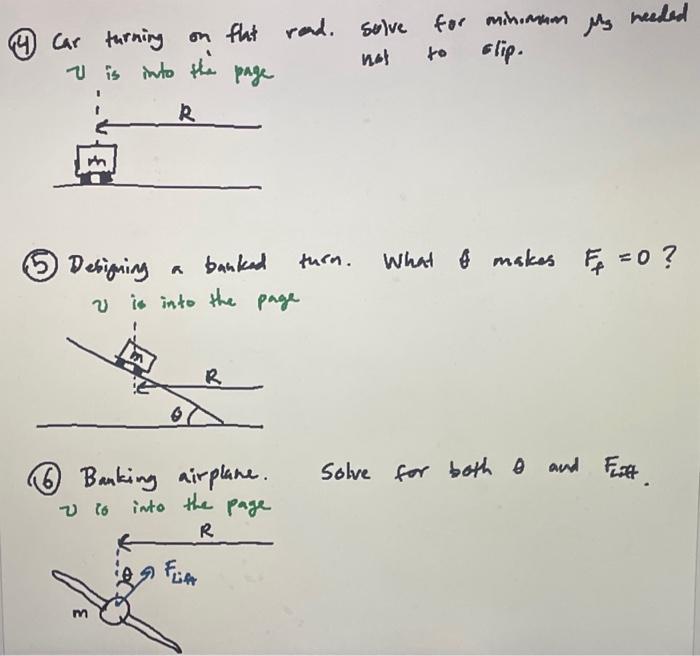 ④ Car turning on flat road. Solve for minimum μs needed
v is into the page not to slip.
R
m
⑤ Designing a banked turn. What θ makes Ff = 0 ?
v is into the page
m
R
θ
⑥ Banking airplane. Solve for both θ and FLift.
v is into the page
R
θ FLift
m